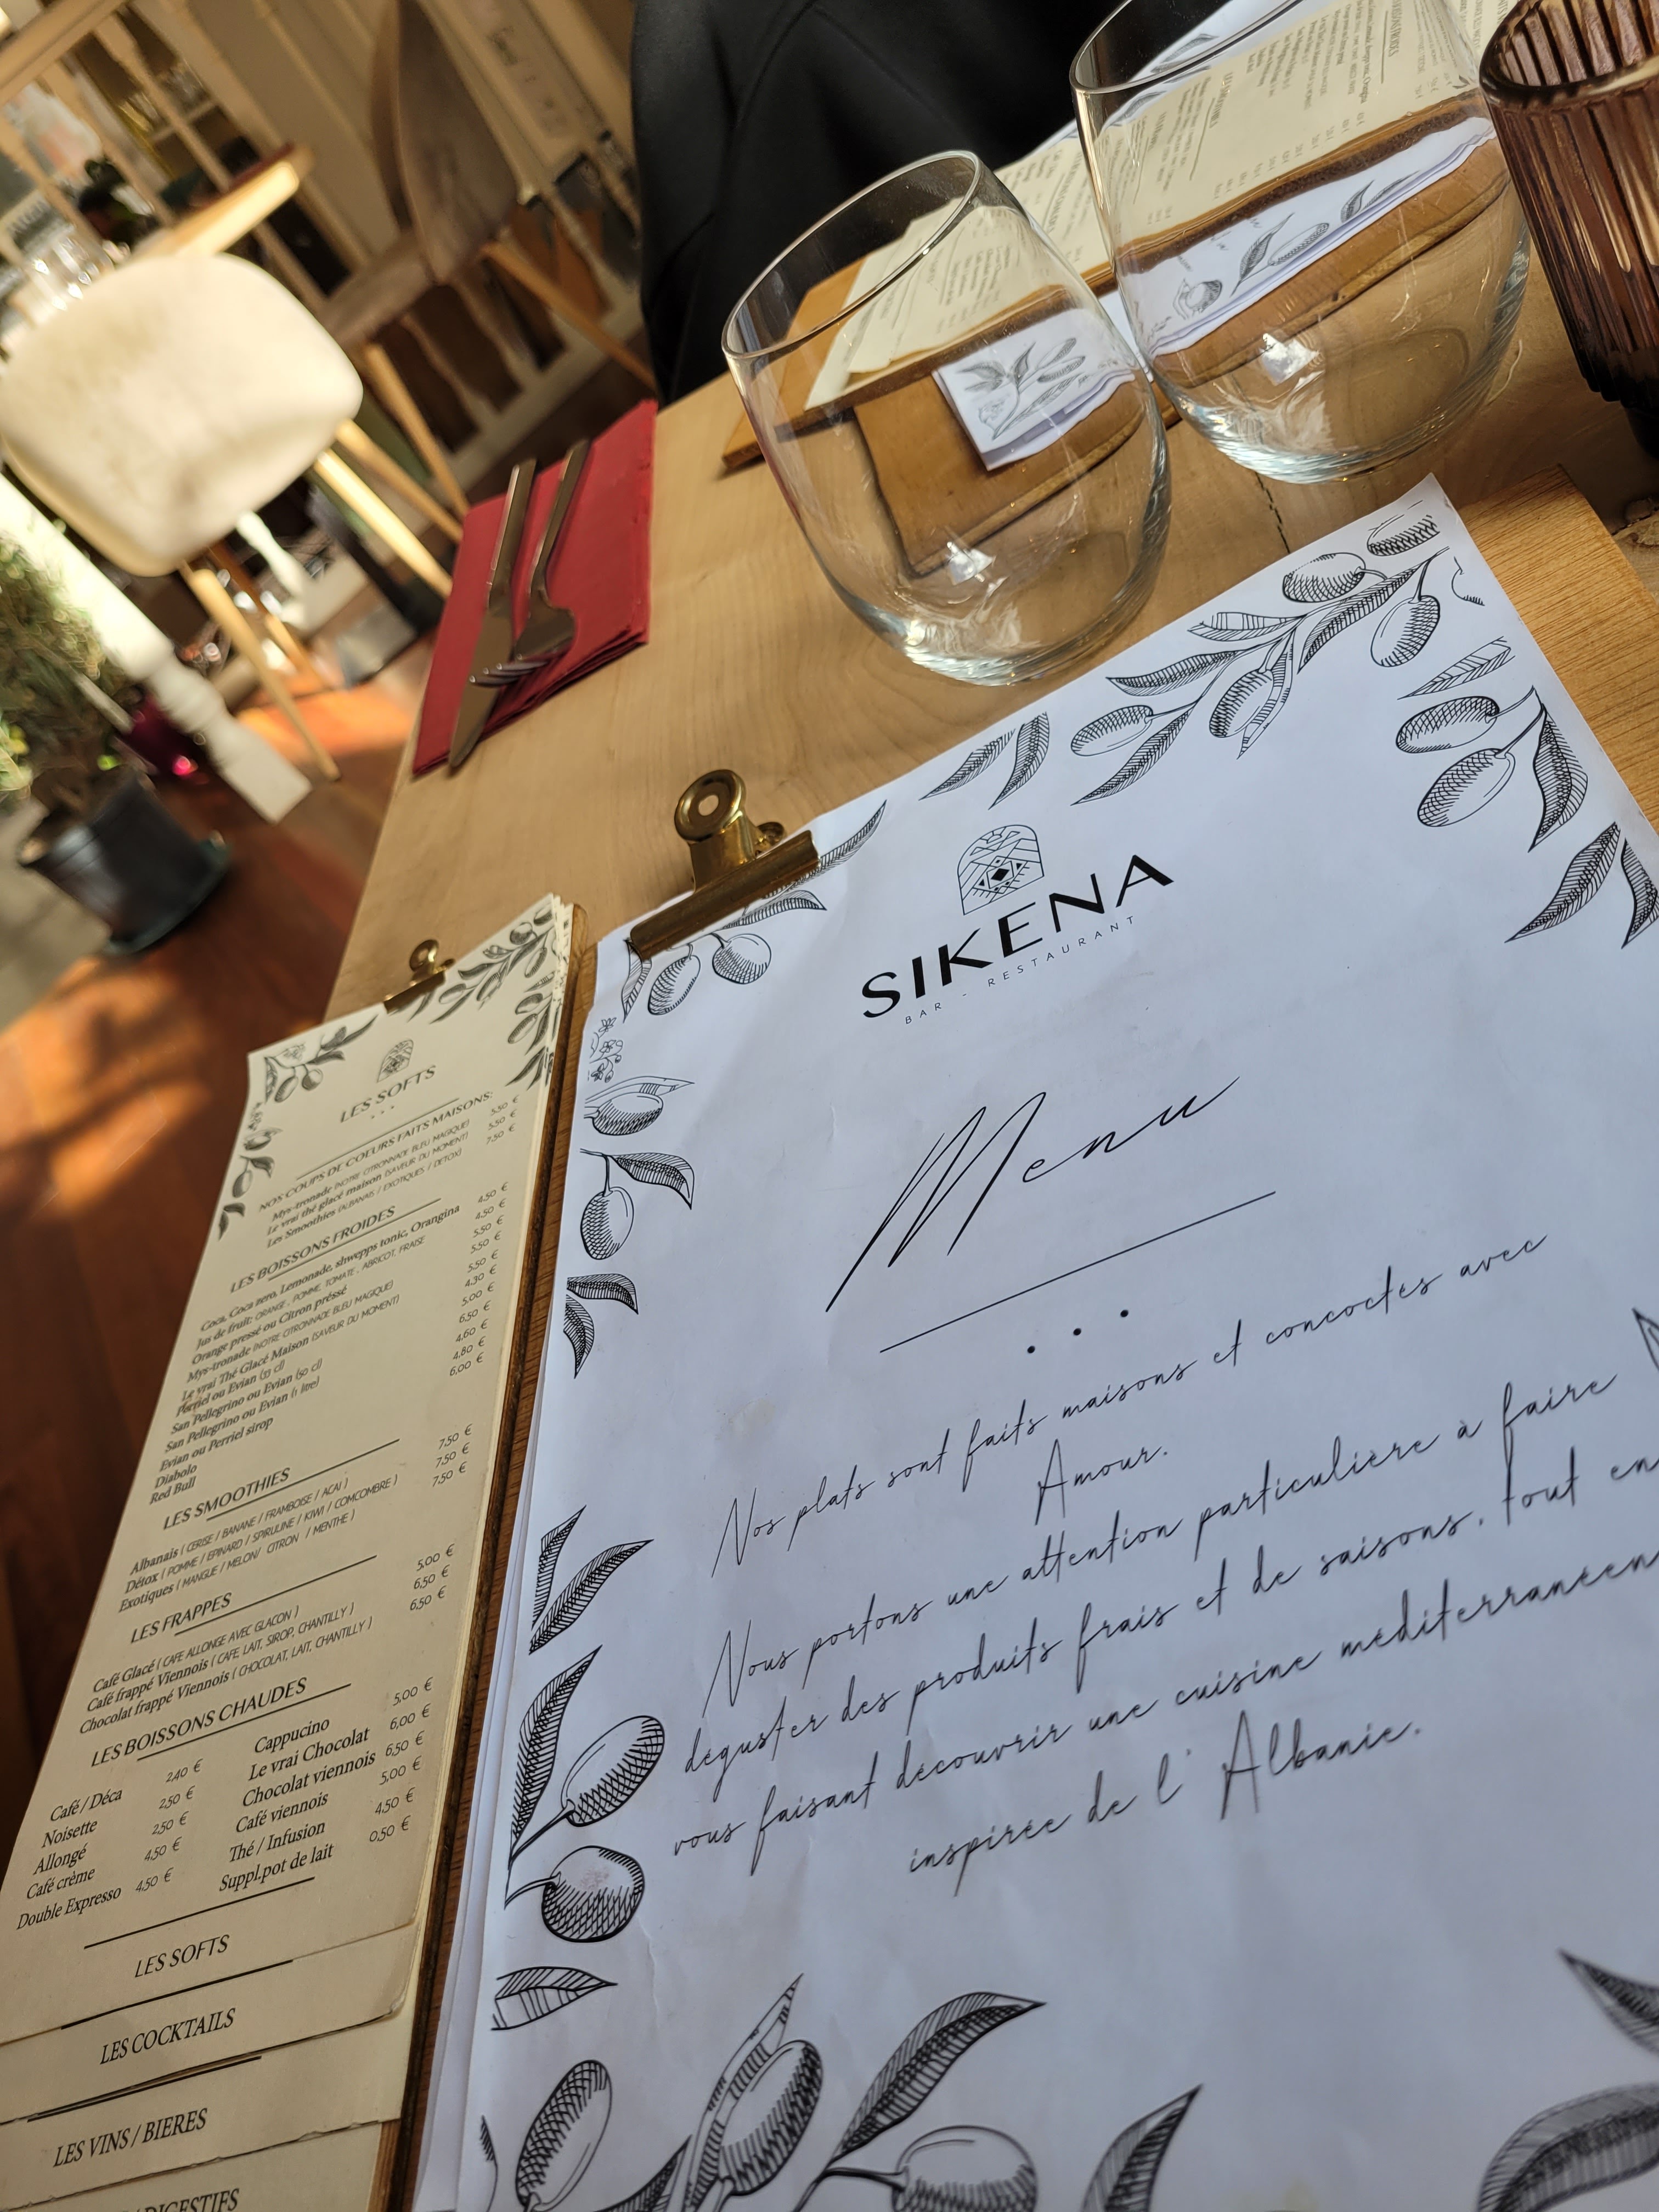 SIKENA
BAR - RESTAURANT
Menu
Nos plats sont faits maisons et concoctés avec
Amour.
Nous portons une attention particulière à faire
déguster des produits frais et de saisons, tout en
vous faisant découvrir une cuisine méditerranéen
inspirée de l'Albanie.
LES SOFTS
NOS COUPS DE COEURS FAITS MAISONS:
Mys-tronade (NOTRE CITRONNADE BLEU MAGIQUE) 5,50 €
Le vrai thé glacé maison (SAVEUR DU MOMENT) 5,50 €
Les Smoothies (ALBANAIS / EXOTIQUES / DETOX) 7,50 €
LES BOISSONS FROIDES
Coca, Coca zero, Lemonade, shwepps tonic, Orangina 4,50 €
Jus de fruit: ORANGE, POMME, TOMATE, ABRICOT, FRAISE 4,50 €
Orange pressé ou Citron préssé 5,50 €
Mys-tronade (NOTRE CITRONNADE BLEU MAGIQUE) 5,50 €
Le vrai Thé Glacé Maison (SAVEUR DU MOMENT) 5,50 €
Perriel ou Evian (33 cl) 4,30 €
San Pellegrino ou Evian (50 cl) 5,00 €
San Pellegrino ou Evian (1 litre) 6,50 €
Evian ou Perriel sirop 4,60 €
Diabolo 4,80 €
Red Bull 6,00 €
LES SMOOTHIES
Albanais ( CERISE / BANANE / FRAMBOISE / ACAI ) 7,50 €
Détox ( POMME / EPINARD / SPIRULINE / KIWI / COMCOMBRE ) 7,50 €
Exotiques ( MANGUE / MELON/ CITRON / MENTHE ) 7,50 €
LES FRAPPES
Café Glacé ( CAFE ALLONGE AVEC GLACON ) 5,00 €
Café frappé Viennois ( CAFE, LAIT, SIROP, CHANTILLY ) 6,50 €
Chocolat frappé Viennois ( CHOCOLAT, LAIT, CHANTILLY ) 6,50 €
LES BOISSONS CHAUDES
Café / Déca 2,40 €
Noisette 2,50 €
Allongé 2,50 €
Café crème 4,50 €
Double Expresso 4,50 €
Cappucino 5,00 €
Le vrai Chocolat 6,00 €
Chocolat viennois 6,50 €
Café viennois 5,00 €
Thé / Infusion 4,50 €
Suppl.pot de lait 0,50 €
LES SOFTS
LES COCKTAILS
LES VINS / BIERES
DIGESTIFS